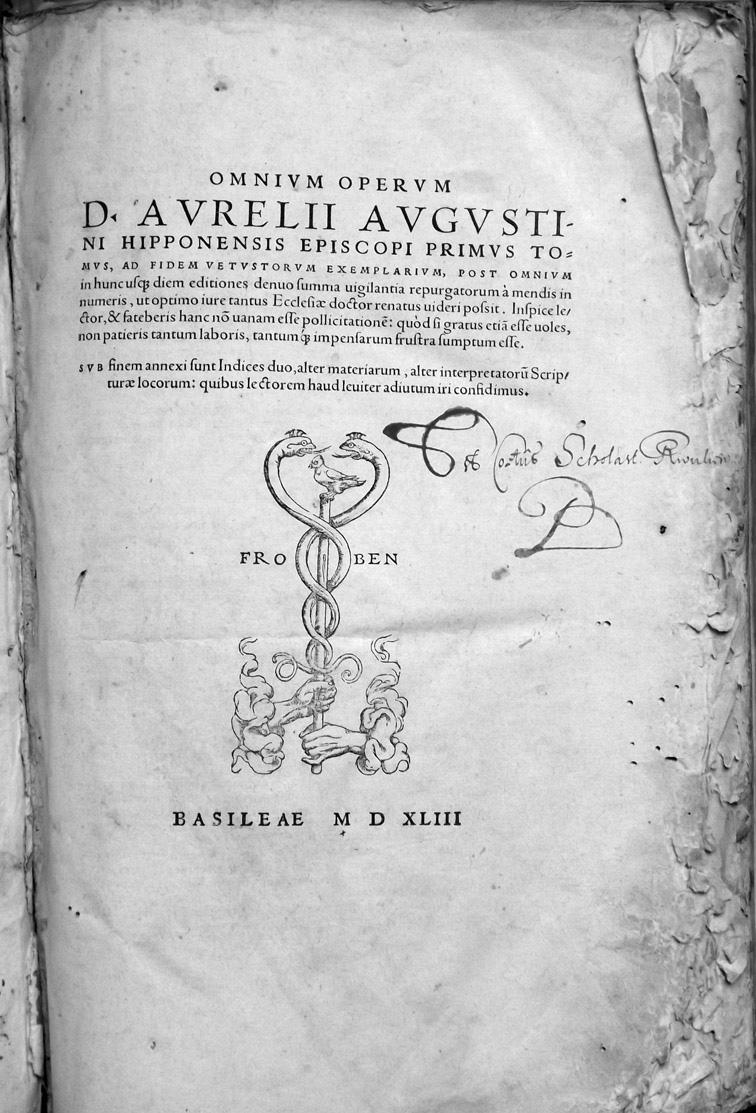 OMNIVM OPERVM
D. AVRELII AVGVSTI-
NI HIPPONENSIS EPISCOPI PRIMVS TO=
MVS, AD FIDEM VETVSTORVM EXEMPLARIVM, POST OMNIVM
in hunc usq; diem editiones denuo summa uigilantia repurgatorum à mendis in
numeris, ut optimo iure tantus Ecclesiæ doctor renatus uideri possit. Inspice le/
ctor, & fateberis hanc nõ uanam esse pollicitationẽ: quòd si gratus etiã esse uoles,
non patieris tantum laboris, tantumq́; impensarum frustra sumptum esse.
SVB finem annexi sunt Indices duo, alter materiarum, alter interpretatorũ Scrip/
turæ locorum: quibus lectorem haud leuiter adiutum iri confidimus.
Scholast.
FRO BEN
BASILEAE M D XLIII